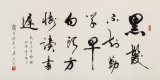 黑發
不知勤
學早
白首方
悔讀書
遲